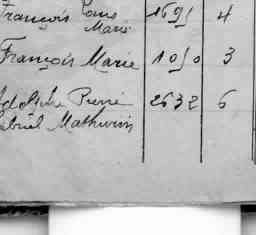 François Louis 1691 4
Marie
François Marie 1050 3
Adolphe Pierre 2632 6
Gabriel Mathurin